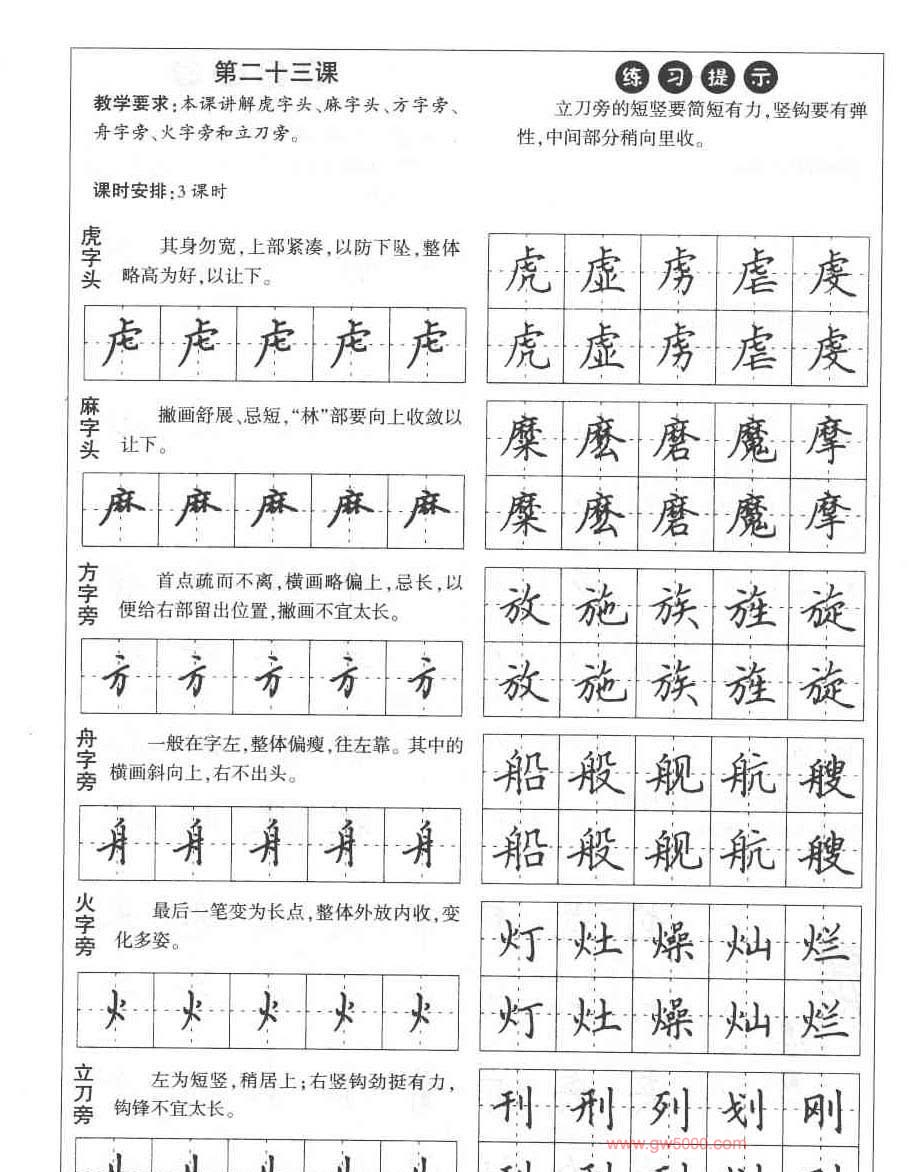 第二十三课
教学要求:本课讲解虎字头、麻字头、方字旁、
舟字旁、火字旁和立刀旁。
课时安排:3课时
练习提示
立刀旁的短竖要简短有力,竖钩要有弹
性,中间部分稍向里收。
虎字头
其身勿宽,上部紧凑,以防下坠,整体
略高为好,以让下。
虍 虍 虍 虍 虍
虎 虚 虏 虐 虔
虎 虚 虏 虐 虔
麻字头
撇画舒展、忌短,“林”部要向上收敛以
让下。
麻 麻 麻 麻 麻
糜 麽 磨 魔 摩
糜 麽 磨 魔 摩
方字旁
首点疏而不离,横画略偏上,忌长,以
便给右部留出位置,撇画不宜太长。
方 方 方 方 方
放 施 族 旌 旋
放 施 族 旌 旋
舟字旁
一般在字左,整体偏瘦,往左靠。其中的
横画斜向上,右不出头。
舟 舟 舟 舟 舟
船 般 舰 航 艘
船 般 舰 航 艘
火字旁
最后一笔变为长点,整体外放内收,变
化多姿。
火 火 火 火 火
灯 灶 燥 灿 烂
灯 灶 燥 灿 烂
立刀旁
左为短竖,稍居上;右竖钩劲挺有力,
钩锋不宜太长。
刊 刑 列 划 刚
www.gw5000.com